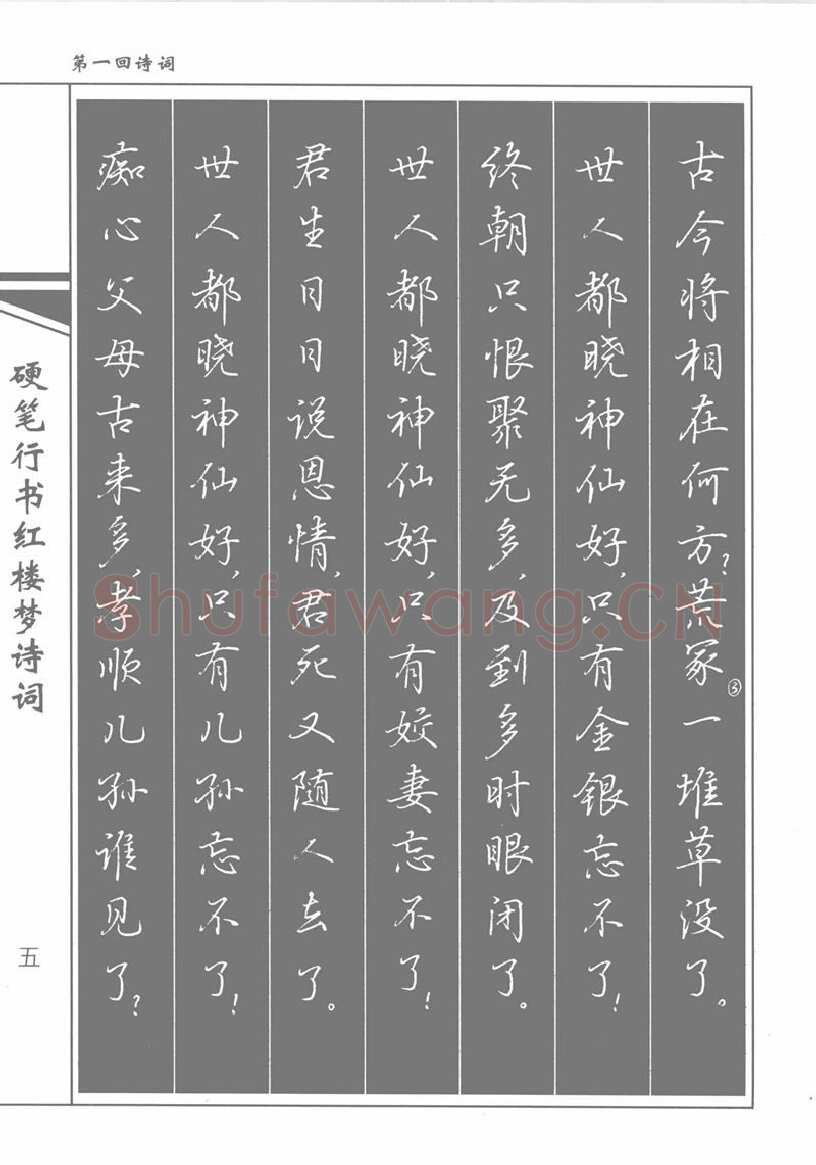 第一回诗词
古今将相在何方?荒冢③一堆草没了。
世人都晓神仙好,只有金银忘不了!
终朝只恨聚无多,及到多时眼闭了。
世人都晓神仙好,只有姣妻忘不了!
君生日日说恩情,君死又随人去了。
世人都晓神仙好,只有儿孙忘不了!
痴心父母古来多,孝顺儿孙谁见了?
硬笔行书红楼梦诗词
五
Shufawang.CN